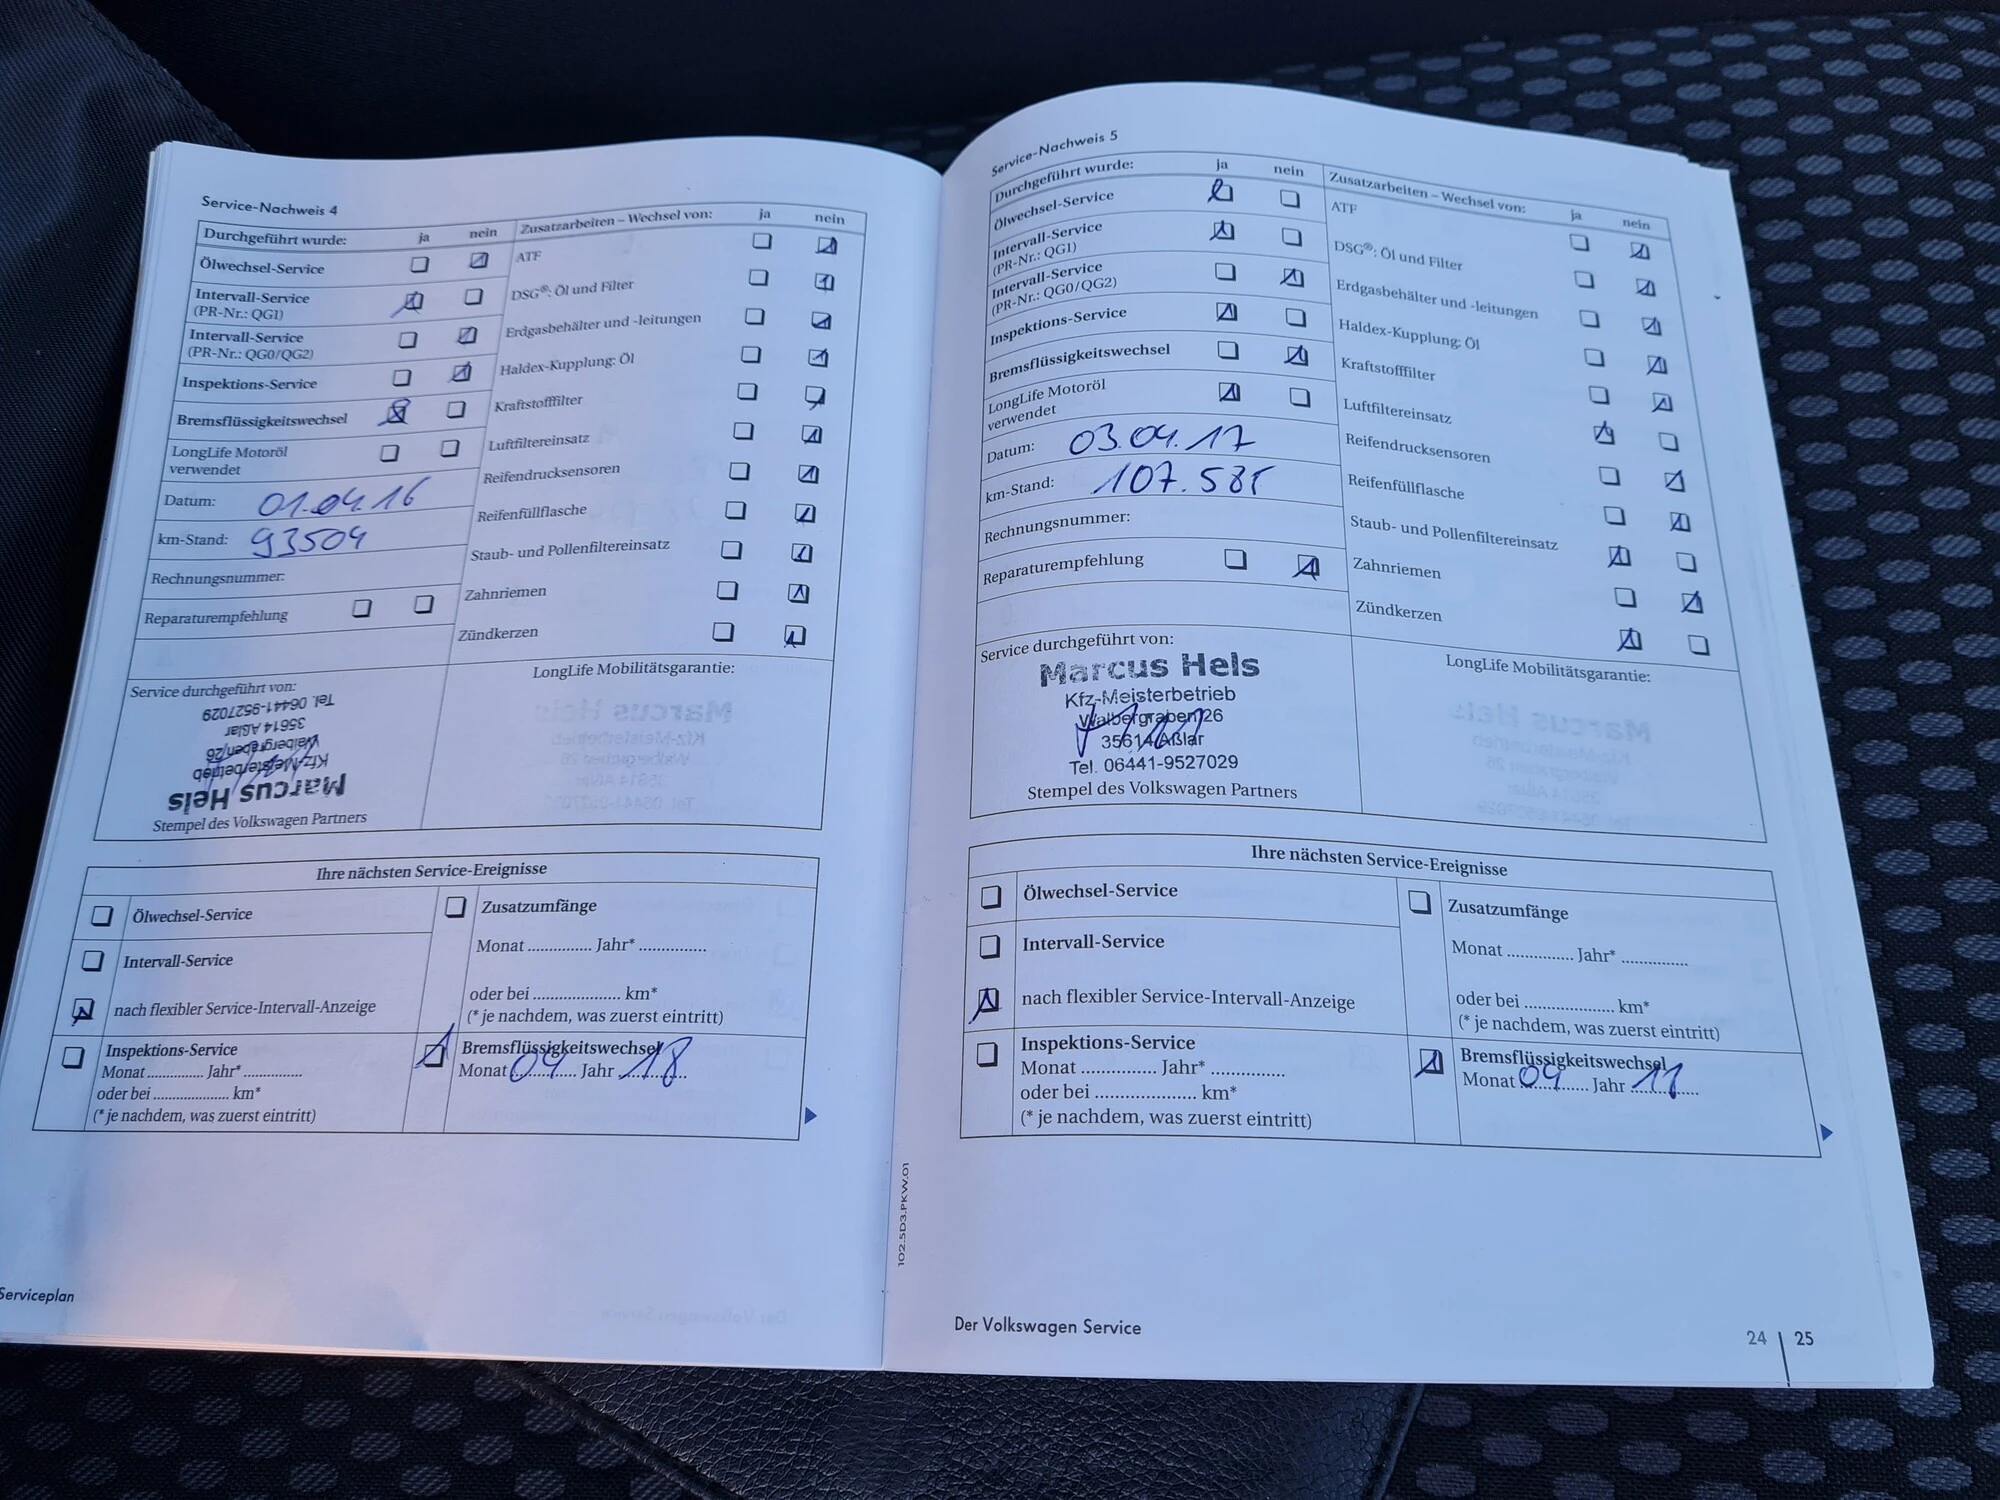 Service-Nachweis 4
Durchgeführt wurde: ja nein
Ölwechsel-Service
Intervall-Service
(PR-Nr.: QG1)
Intervall-Service
(PR-Nr.: QG0/QG2)
Inspektions-Service
Bremsflüssigkeitswechsel
LongLife Motoröl
verwendet
Datum: 01.04.16
km-Stand: 93504
Rechnungsnummer:
Reparaturempfehlung
Zusatzarbeiten – Wechsel von: ja nein
ATF
DSG®: Öl und Filter
Erdgasbehälter und -leitungen
Haldex-Kupplung: Öl
Kraftstofffilter
Luftfiltereinsatz
Reifendrucksensoren
Reifenfüllflasche
Staub- und Pollenfiltereinsatz
Zahnriemen
Zündkerzen
Service durchgeführt von:
Marcus Hels
Kfz-Meisterbetrieb
Walbergraben 26
35614 Aßlar
Tel. 06441-9527029
Stempel des Volkswagen Partners
LongLife Mobilitätsgarantie:
Ihre nächsten Service-Ereignisse
Ölwechsel-Service
Intervall-Service
nach flexibler Service-Intervall-Anzeige
Inspektions-Service
Monat .............. Jahr* ..............
oder bei ................... km*
(* je nachdem, was zuerst eintritt)
Zusatzumfänge
Monat .............. Jahr* ..............
oder bei .................... km*
(* je nachdem, was zuerst eintritt)
Bremsflüssigkeitswechsel
Monat 04 Jahr 18
Serviceplan
Service-Nachweis 5
Durchgeführt wurde: ja nein
Ölwechsel-Service
Intervall-Service
(PR-Nr.: QG1)
Intervall-Service
(PR-Nr.: QG0/QG2)
Inspektions-Service
Bremsflüssigkeitswechsel
LongLife Motoröl
verwendet
Datum: 03.04.17
km-Stand:
Rechnungsnummer:
Reparaturempfehlung
Zusatzarbeiten – Wechsel von: ja nein
ATF
DSG®: Öl und Filter
Erdgasbehälter und -leitungen
Haldex-Kupplung: Öl
Kraftstofffilter
Luftfiltereinsatz
Reifendrucksensoren
Reifenfüllflasche
Staub- und Pollenfiltereinsatz
Zahnriemen
Zündkerzen
Service durchgeführt von:
Marcus Hels
Kfz-Meisterbetrieb
Walbergraben 26
35614 Aßlar
Tel. 06441-9527029
Stempel des Volkswagen Partners
LongLife Mobilitätsgarantie:
Ihre nächsten Service-Ereignisse
Ölwechsel-Service
Intervall-Service
nach flexibler Service-Intervall-Anzeige
Inspektions-Service
Monat .............. Jahr* ..............
oder bei ................... km*
(* je nachdem, was zuerst eintritt)
Zusatzumfänge
Monat .............. Jahr* ..............
oder bei .................... km*
(* je nachdem, was zuerst eintritt)
Bremsflüssigkeitswechsel
Monat 04 Jahr
102.5D3.PKW.01
Der Volkswagen Service
24 | 25